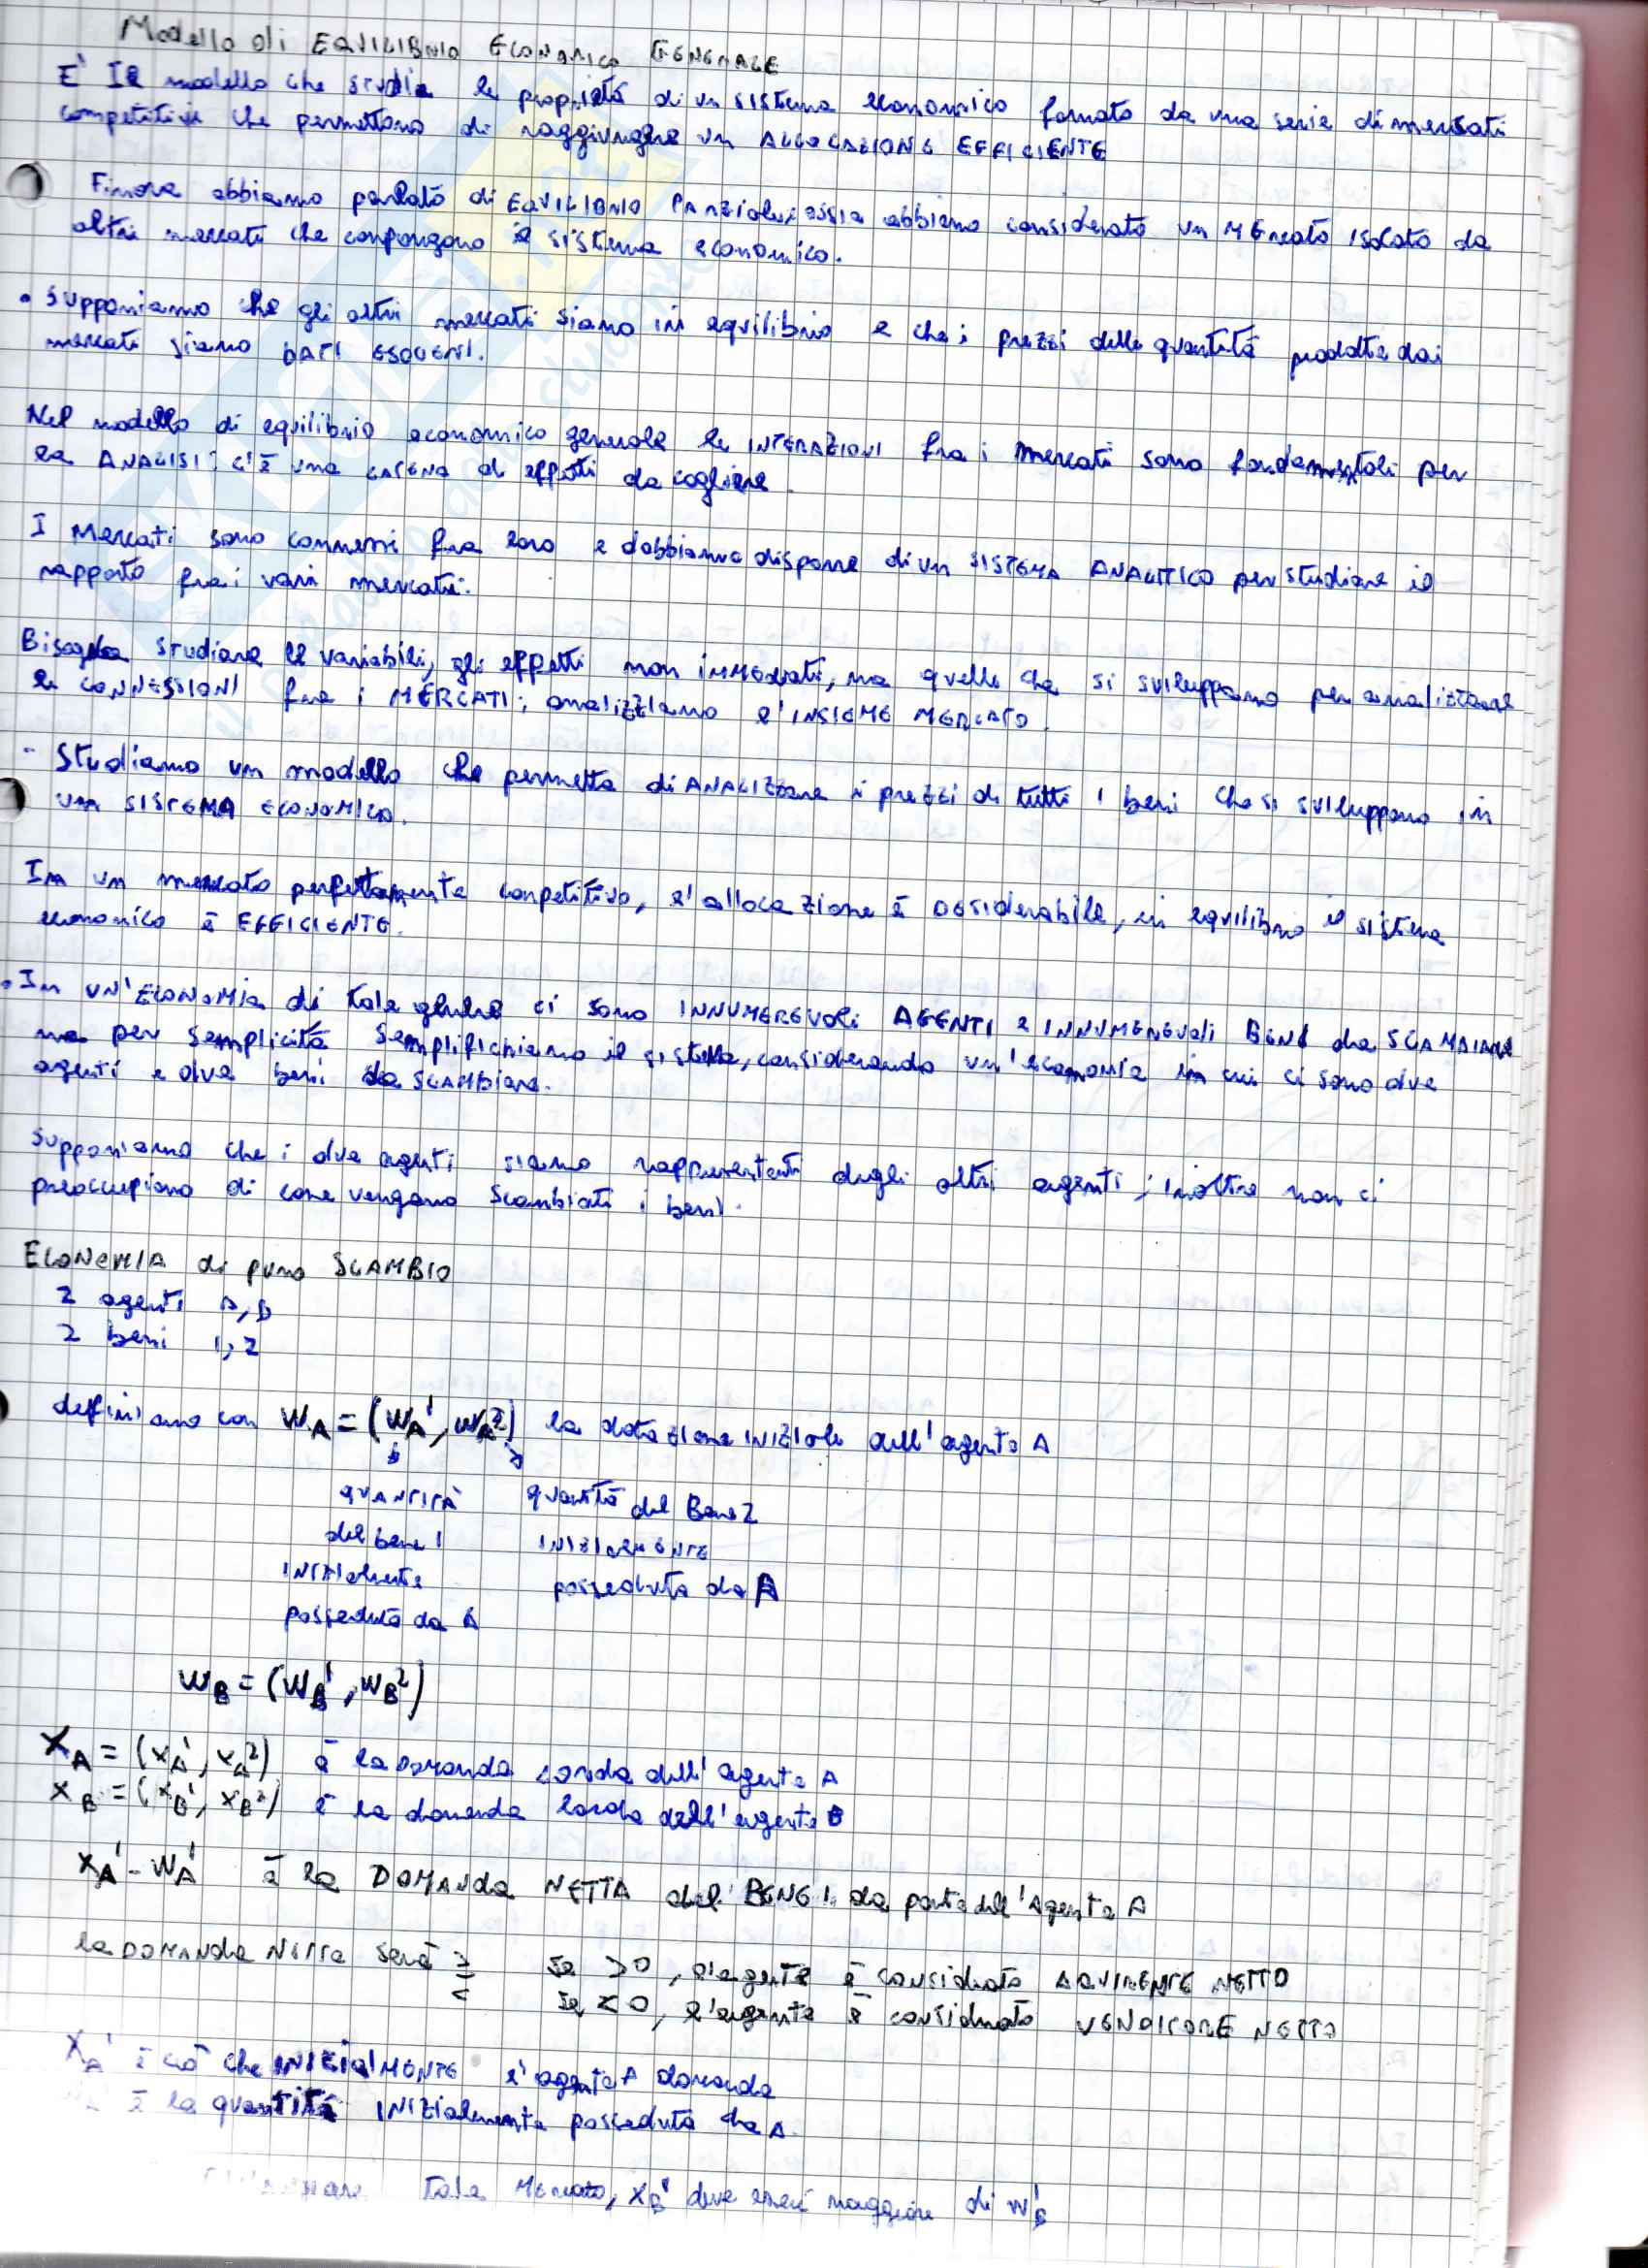 Modello di EQUILIBRIO ECONOMICO GENERALE
E' Il modello che studia le proprietà di un sistema economico formato da una serie di mercati
competitivi che permettono di raggiungere un ALLOCAZIONE EFFICIENTE
Finora abbiamo parlato di EQUILIBRIO PARZIALE, ossia abbiamo considerato un MERCATO ISOLATO da
altri mercati che compongono il sistema economico.
• Supponiamo che gli altri mercati siano in equilibrio e che i prezzi delle quantità prodotte dai
mercati siano DATI ESOGENI.
Nel modello di equilibrio economico generale le INTERAZIONI fra i mercati sono fondamentali per
la ANALISI: c'è una catena di effetti da cogliere.
I Mercati sono connessi fra loro e dobbiamo disporre di un SISTEMA ANALITICO per studiare il
rapporto fra i vari mercati.
Bisogna studiare le variabili, gli effetti non immediati, ma quelle che si sviluppano per analizzare
le CONNESSIONI fra i MERCATI; analizziamo l'INSIEME MERCATO.
- Studiamo un modello che permetta di ANALIZZare i prezzi di tutti i beni che si sviluppano in
un SISTEMA ECONOMICO.
In un mercato perfettamente competitivo, l'allocazione è DESIDERABILE, in equilibrio il sistema
economico è EFFICIENTE.
• In un'ECONOMIA di tale genere ci sono INNUMEREVOLI AGENTI e INNUMEREVOLI BENI da SCAMBIARE
ma per semplicità semplifichiamo il sistema, considerando un'economia in cui ci sono due
agenti e due beni da SCAMBIARE.
Supponiamo che i due agenti siano rappresentanti degli altri agenti; inoltre non ci
preoccupiamo di come vengano scambiati i beni.
ECONOMIA di puro SCAMBIO
2 agenti A, B
2 beni 1, 2
definiamo con WA = (WA¹, WA²) la dotazione INIZIALE dell'agente A
QUANTITÀ quantità del Bene 2
del bene 1 INIZIALMENTE
INIZIALMENTE posseduta da A
posseduta da A
WB = (WB¹, WB²)
XA = (XA¹, XA²) è la DOMANDA lorda dell'agente A
XB = (XB¹, XB²) è la domanda lorda dell'agente B
XA¹ - WA¹ è la DOMANDA NETTA del BENE 1 da parte dell'Agente A
la DOMANDA NETTA sarà ⋛ se >0, l'agente è considerato ACQUIRENTE NETTO
se <0, l'agente è considerato VENDITORE NETTO
XA¹ è ciò che INIZIALMENTE l'agente A domanda
è la quantità INIZIALMENTE posseduta da A.
tale Mercato, XB¹ deve essere maggiore di WB¹